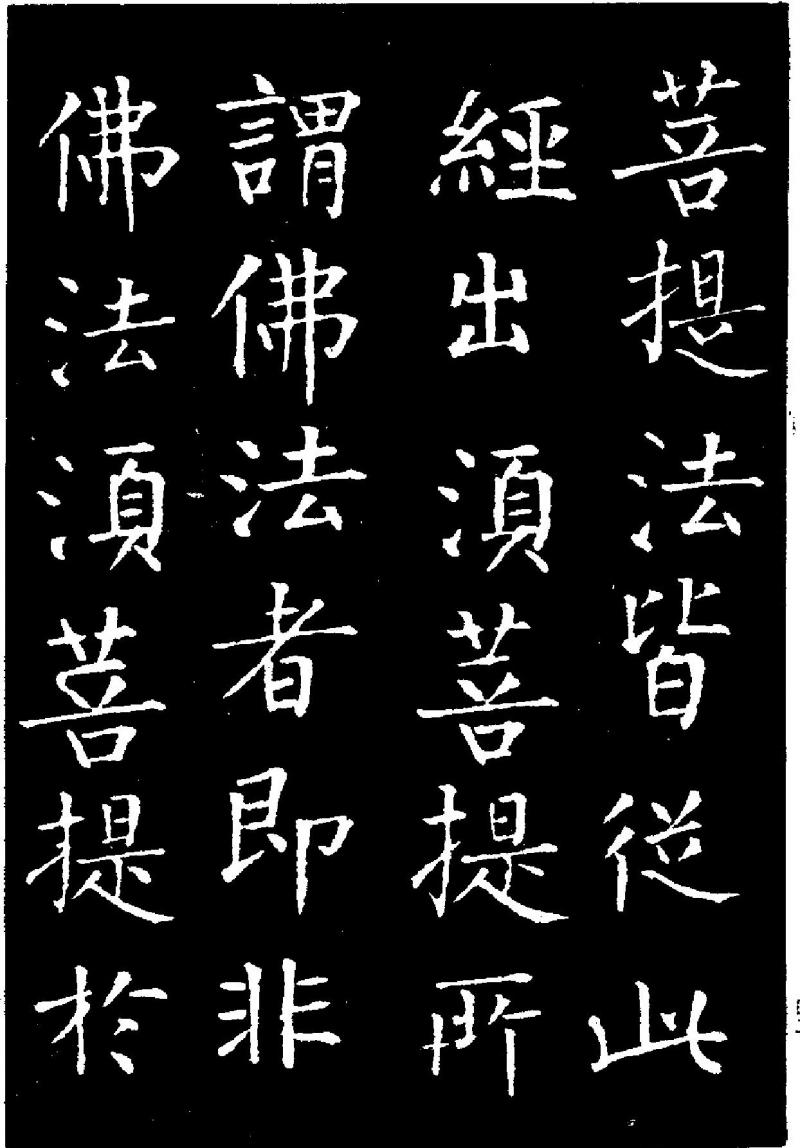 菩提法皆從此
經出須菩提所
謂佛法者即非
佛法須菩提於